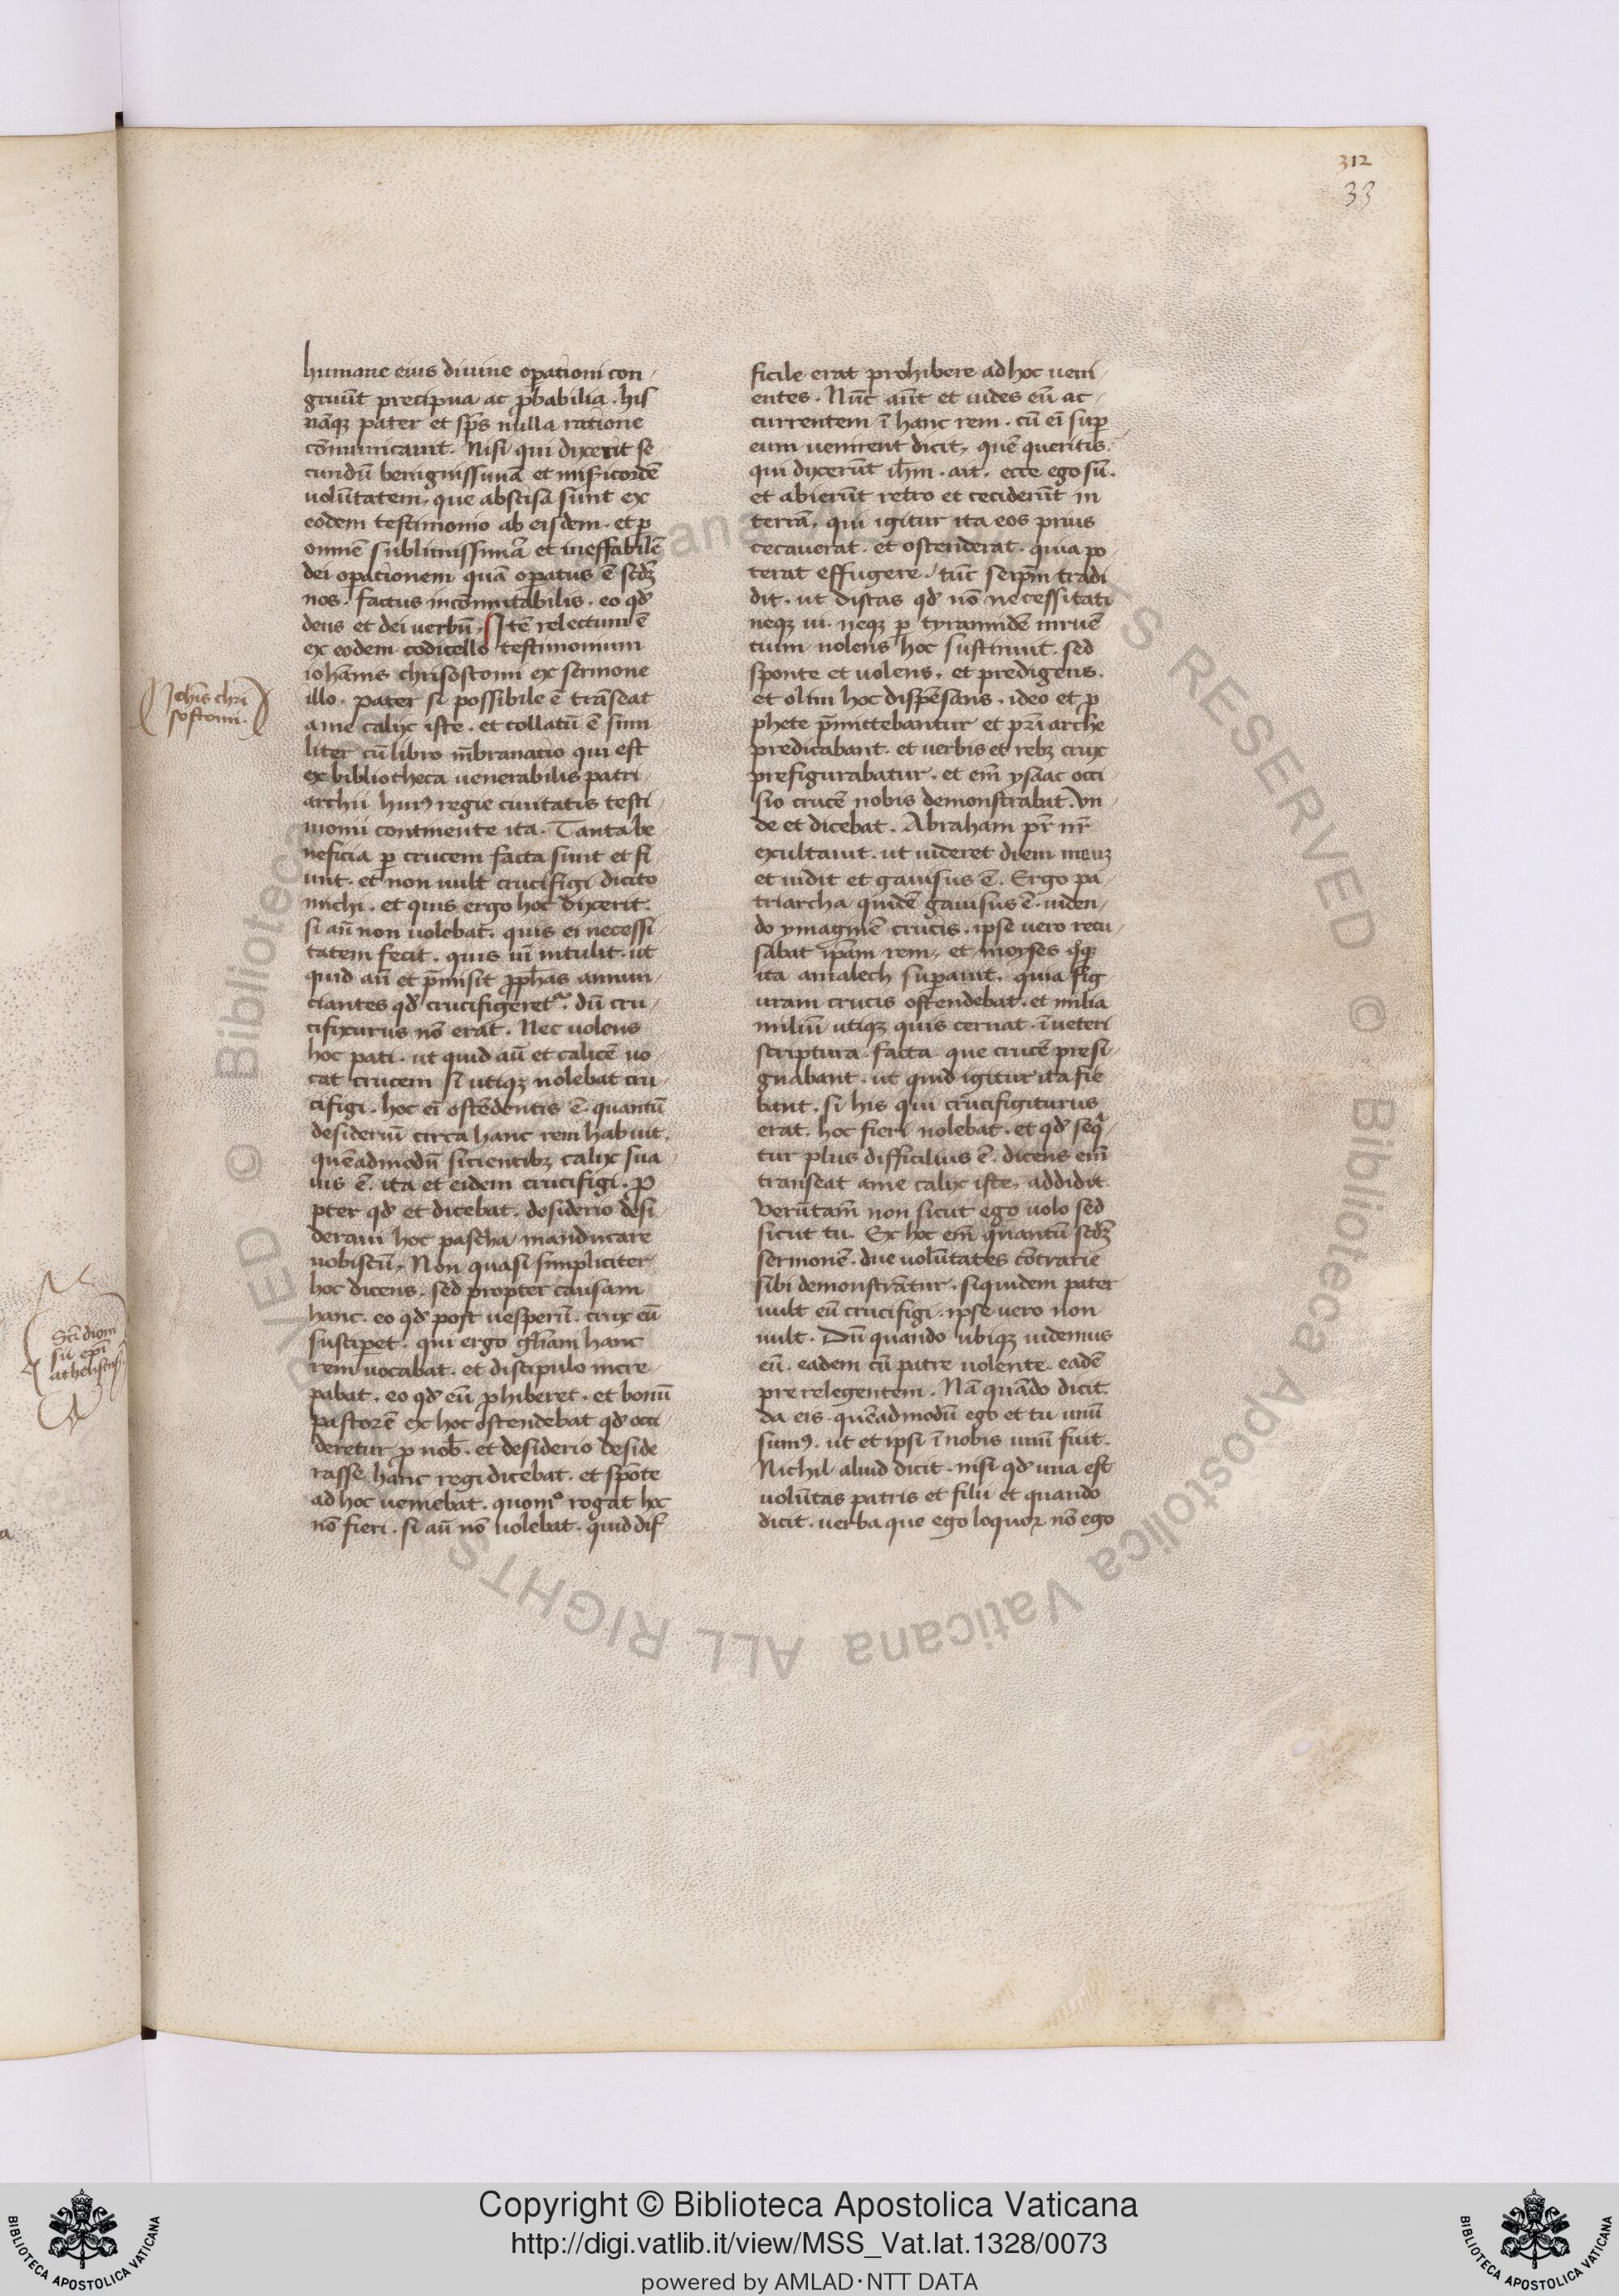 312
33
humane eius diuine oꝑationi con-
gruūt precipua ac ꝓbabilia. his
nāqꝫ pater et sp̄s nulla ratione
cōmunicauit. Nisi qui dyxerit se-
cundū benignissimā et miẜicordē
uolūtatem, que abscisa sunt ex
eodem testimonio ab eisdem. et ꝑ
omnē sublimissimā et ineffabilē
dei oꝑationem quā oꝑatus ē scdꝫ
nos. factus incōmutabilis. eo qd̄
deus et dei uerbū. Itē relectum ē
ex eodem codicello testimonium
ioh̄annis chrisostomi ex sermone
illo. pater si possibile ē trāseat
ame calyx iste. et collatū ē simi
liter cū libro mēbranacio qui est
ex bibliotheca uenerabilis patri-
archii huiꝰ regie ciuitatis testi-
monii continente ita. Tanta be-
neficia ꝑ crucem facta sunt et fi-
unt. et non uult crucifigi dicito
michi. et quis ergo hoc dyxerit.
si aū non uolebat. quis ei necessi-
tatem fecit. quis uī intulit. ut
quid aū et p̄misit ꝓph̄as annun-
ciantes qd̄ crucifigeret᷑. dū cru-
cifixurus nō erat. Nec uolens
hoc pati. ut quid aū et calicē uo-
cat crucem si utiqꝫ nolebat cru-
cifigi. hoc ei ostēdentis ē. quantū
desideriū circa hanc rem habuit.
quēadmodū sicientibꝫ calyx sua-
uis ē. ita et eidem crucifigi. ꝓ
pter qd̄ et dicebat. desiderio desi-
deraui hoc pascha manducare
uobiscū. Non quasi simpliciter
hoc dicens. sed propter causam
hanc. eo qd̄ post uesperū. crux eū
suscipet. qui ergo gl̄iam hanc
rem uocabat. et discipulo incre-
pabat. eo qd̄ eū ꝓhiberet. et bonū
pastorē ex hoc ostendebat qd̄ occi-
deretur ꝓ nob̄. et desiderio deside
rasse hanc regi dicebat. et spōte
ad hoc ueniebat. quomº rogat hoc
nō fieri. si aū nō uolebat. quid dif
Ioh̄is chri
sostomi.
ficile erat prohibere ad hoc ueni-
entes. Nūc aūt et uides eū ac-
currentem ī hanc rem. cū eī suꝑ
eum uenirent dicit, quē queritis.
qui dyxerūt ih̄m. ait. ecce ego sū.
et abierūt retro et ceciderūt in
terrā, qui igitur ita eos prius
cecauerat. et ostenderat. quia po-
terat effugere. tūc seip̄m tradi
dit. ut discas qd̄ nō necessitati
neqꝫ ui. neqꝫ ꝑ tyrannidē inruē-
tium nolens hoc sustinuit. sed
sponte et uolens, et predigens.
et olim hoc dispēsans. ideo et ꝓ
phete p̄mittebantur et pr̄iarche
predicabant. et uerbis et rebꝫ crux
prefigurabatur. et em̄ ysaac occi-
sio crucē nobis demonstrabat. Vn
de et dicebat. Abraham pr̄ nr̄
exultauit. ut uideret diem meuꝫ
et uidit et gauisus ē. Ergo pa-
triarcha quidē gauisus ē. uiden-
do ymaginē crucis. ipse uero recu-
sabat ip̄am rem, et moyses qͦqꝫ
ita amalech suꝑauit. quia fig-
uram crucis ostendebat. et milia
miliū utiqꝫ quis cernat. ī ueteri
scriptura. facta que crucē presi-
gnabant. ut quid igitur ita fie-
bant. si his qui crucifigiturus
erat. hoc fieri nolebat. et qd̄ seqͥ
tur plus difficilius ē. dicens em̄
transeat ame calyx iste, addidit.
Verūtam̄ non sicut ego uolo sed
sicut tu. Ex hoc em̄ quantū scdꝫ
sermonē. due uolūtates cōtrarie
sibi demonstrātur. siquidem pater
uult eū crucifigi. ipse uero non
uult. Dū quando ubiqꝫ uidemus
eū. eadem cū patre uolente. eadē
pre relegentem. Nā quādo dicit.
da eis. quēadmodū ego et tu unū
sumꝰ. ut et ipsi ī nobis unū suit.
Nichil aliud dicit. nisi qd̄ una est
uolūtas patris et filii et quando
dicit. uerba que ego loquor nō ego
Sc̄i dioni
sii ep̄i
athen̄
Copyright © Biblioteca Apostolica Vaticana
http://digi.vatlib.it/view/MSS_Vat.lat.1328/0073
powered by AMLAD·NTT DATA
BIBLIOTECA APOSTOLICA VATICANA
BIBLIOTECA APOSTOLICA VATICANA